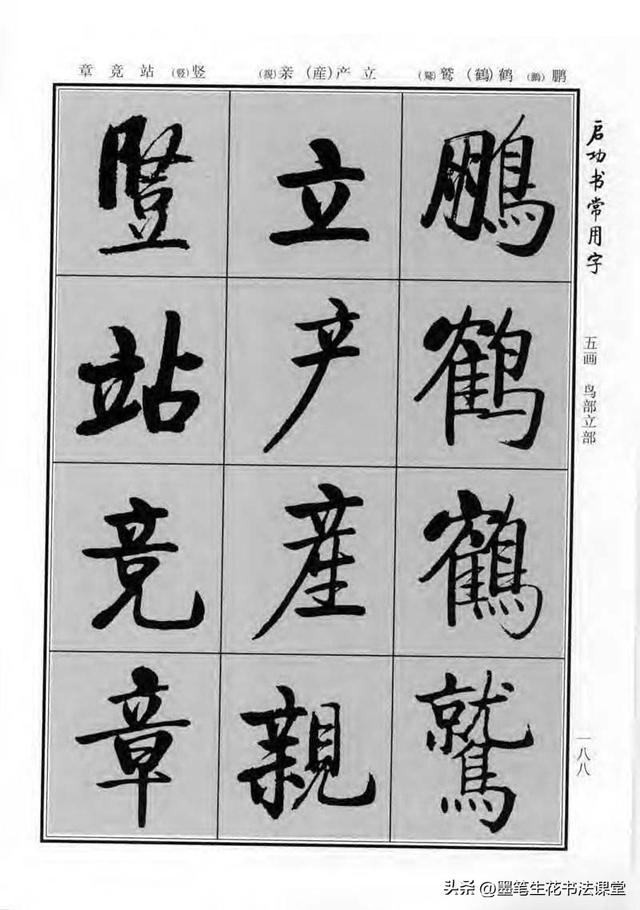 鹏(鵬)鹤(鶴)鹫(鷲)
立产(産)亲(親)
竖(豎)站竞章
启功书常用字
五画 鸟部立部
一八八
鵬鹤鶴鷲
立产産親
豎站竞章
头条 @墨笔生花书法课堂